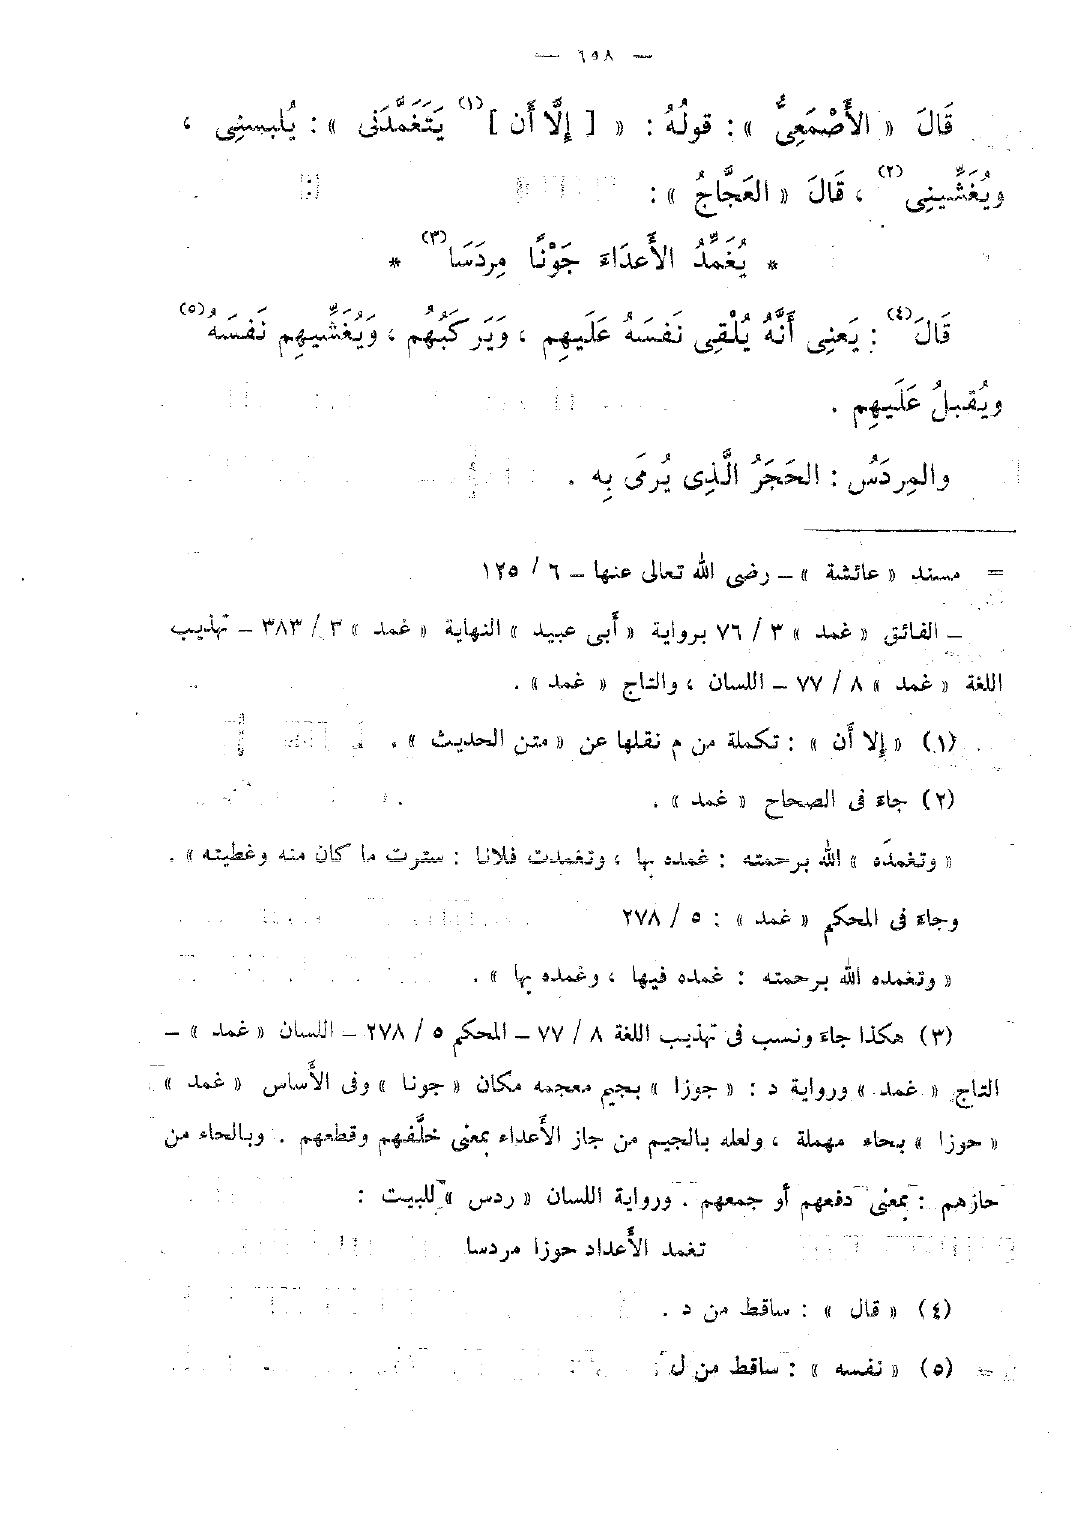 — ٦٥٨ —
قَالَ « الأَصْمَعِىُّ » : قولُهُ : « [ إِلَّا أَن ] (١) يَتَغَمَّدَنى » : يُلبسنِى ،
ويُغَشِّينِى (٢) ، قَالَ « العَجَّاجُ » :
* يُغَمِّدُ الأَعدَاءَ جَوْنًا مِردَسَا (٣) *
قَالَ (٤) : يَعنِى أَنَّهُ يُلْقِى نَفسَهُ عَلَيهِم ، وَيَركَبُهُم ، وَيُغَشِّيهِم نَفسَهُ (٥)
ويُقبلُ عَلَيهِم .
والمِردَسُ : الحَجَرُ الَّذِى يُرمَى بِه .
= مسند « عائشة » – رضى الله تعالى عنها – ٦ / ١٢٥
– الفائق « غمد » ٣ / ٧٦ برواية « أَبى عبيد » النهاية « غمد » ٣ / ٣٨٣ – تهذيب
اللغة « غمد » ٨ / ٧٧ – اللسان ، والتاج « غمد » .
(١) « إِلا أَن » : تكملة من م نقلها عن « متن الحديث » .
(٢) جاءَ فى الصحاح « غمد » .
« وتغمدَه » الله برحمته : غمده بها ، وتغمدت فلانا : سترت ما كان منه وغطيته » .
وجاءَ فى المحكم « غمد » : ٥ / ٢٧٨
« وتغمده الله برحمته : غمده فيها ، وغمده بها » .
(٣) هكذا جاءَ ونسب فى تهذيب اللغة ٨ / ٧٧ – المحكم ٥ / ٢٧٨ – اللسان « غمد » –
التاج « غمد » ورواية د : « جوزا » بجيم معجمه مكان « جونا » وفى الأَساس « غمد »
« حوزا » بحاء مهملة ، ولعله بالجيم من جاز الأَعداء بمعنى خلَّفهم وقطعهم . وبالحاء من
حازهم : بمعنى دفعهم أو جمعهم . ورواية اللسان « ردس » للبيت :
تغمد الأَعداد حوزا مردسا
(٤) « قال » : ساقط من د .
(٥) « نفسه » : ساقط من ل . =